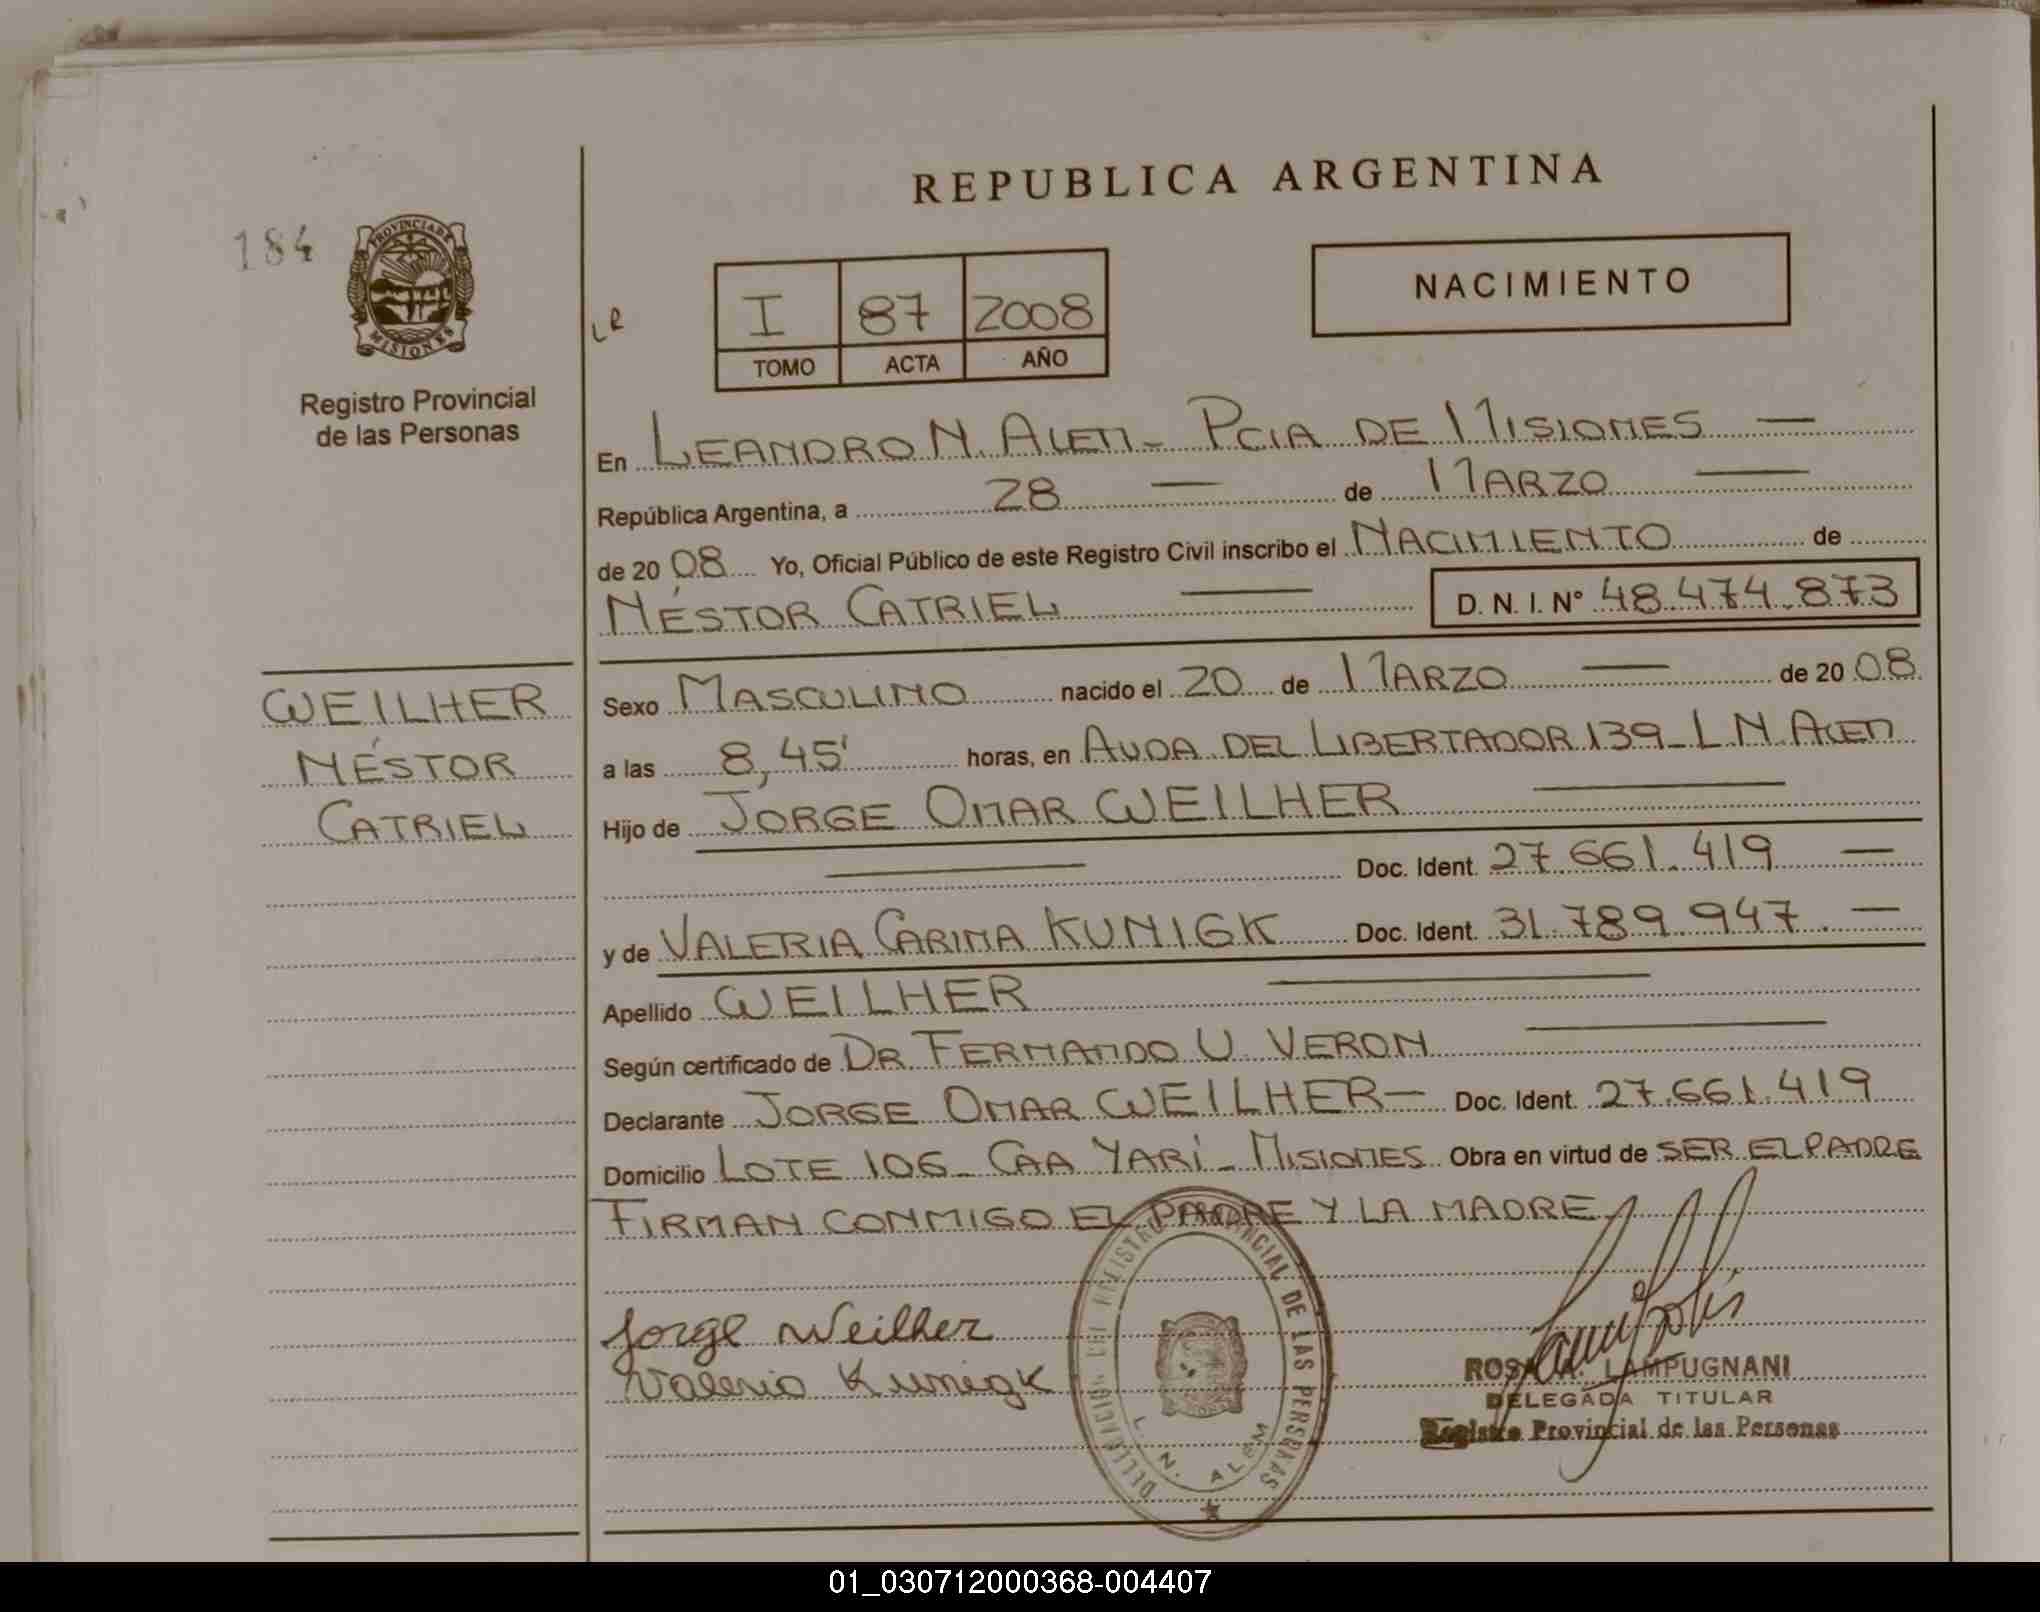 REPUBLICA ARGENTINA
184
PROVINCIA DE
MISIONES
Registro Provincial
de las Personas
LR
I 87 2008
TOMO ACTA AÑO
NACIMIENTO
En LEANDRO N. ALEM - PCIA DE MISIONES —
República Argentina, a 28 — de MARZO —
de 20 08 Yo, Oficial Público de este Registro Civil inscribo el NACIMIENTO de
NÉSTOR CATRIEL — D. N. I. N° 48.474.873
WEILHER
NÉSTOR
CATRIEL
Sexo MASCULINO nacido el 20 de MARZO — de 20 08
a las 8,45' horas, en AVDA DEL LIBERTADOR 139 - L N. ALEM
Hijo de JORGE OMAR WEILHER —
— Doc. Ident. 27.661.419 —
y de VALERIA CARINA KUNIGK Doc. Ident. 31.789.947. —
Apellido WEILHER —
Según certificado de DR FERNANDO U. VERON —
Declarante JORGE OMAR WEILHER — Doc. Ident. 27.661.419
Domicilio LOTE 106 - CAA YARÍ - MISIONES Obra en virtud de SER EL PADRE
FIRMAN CONMIGO EL PADRE Y LA MADRE
Jorge Weilher
Valeria Kunigk
DELEGACION DEL REGISTRO PROVINCIAL DE LAS PERSONAS
L. N. ALEM
ROSA A. LAMPUGNANI
DELEGADA TITULAR
Registro Provincial de las Personas
01_030712000368-004407